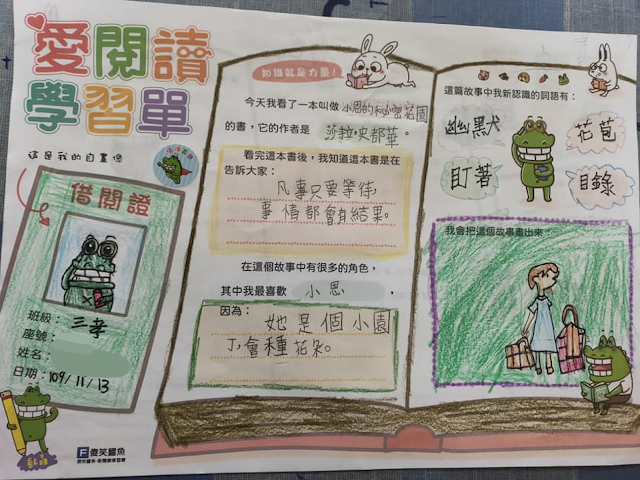 愛閱讀
學習單
這是我的自畫像
借閱證
班級：三孝
座號：
姓名：
日期：109/11/13
傻笑鱷魚
知識就是力量！
今天我看了一本叫做 小恩的秘密花園
的書，它的作者是 莎拉史都華。
看完這本書後，我知道這本書是在
告訴大家：
凡事只要等待，
事情都會有結果。
在這個故事中有很多的角色，
其中我最喜歡 小恩 ，
因為：她是個小園
丁，會種花朵。
這篇故事中我新認識的詞語有：
幽默
花苞
盯著
目錄
我會把這個故事畫出來：